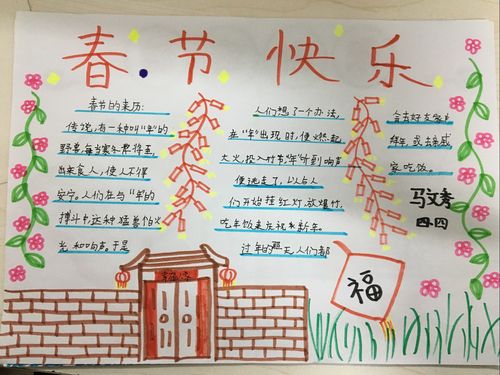 春节快乐
春节的来历:
传说,有一种叫"年"的
野兽,每当寒冬将至,
出来食人,使人不得
安宁。人们在与"年"的
搏斗中,这种猛兽怕火
光和响声。于是
人们想了一个办法,
在"年"出现时,便燃起
大火,投入竹节"年"听到响声
便逃走了,以后人
们开始挂红灯放爆竹,
吃年饭来庆祝新年。
过年的那天人们都
会去好友家
拜年,或去亲戚
家吃饭。
马文秀
四.四
福